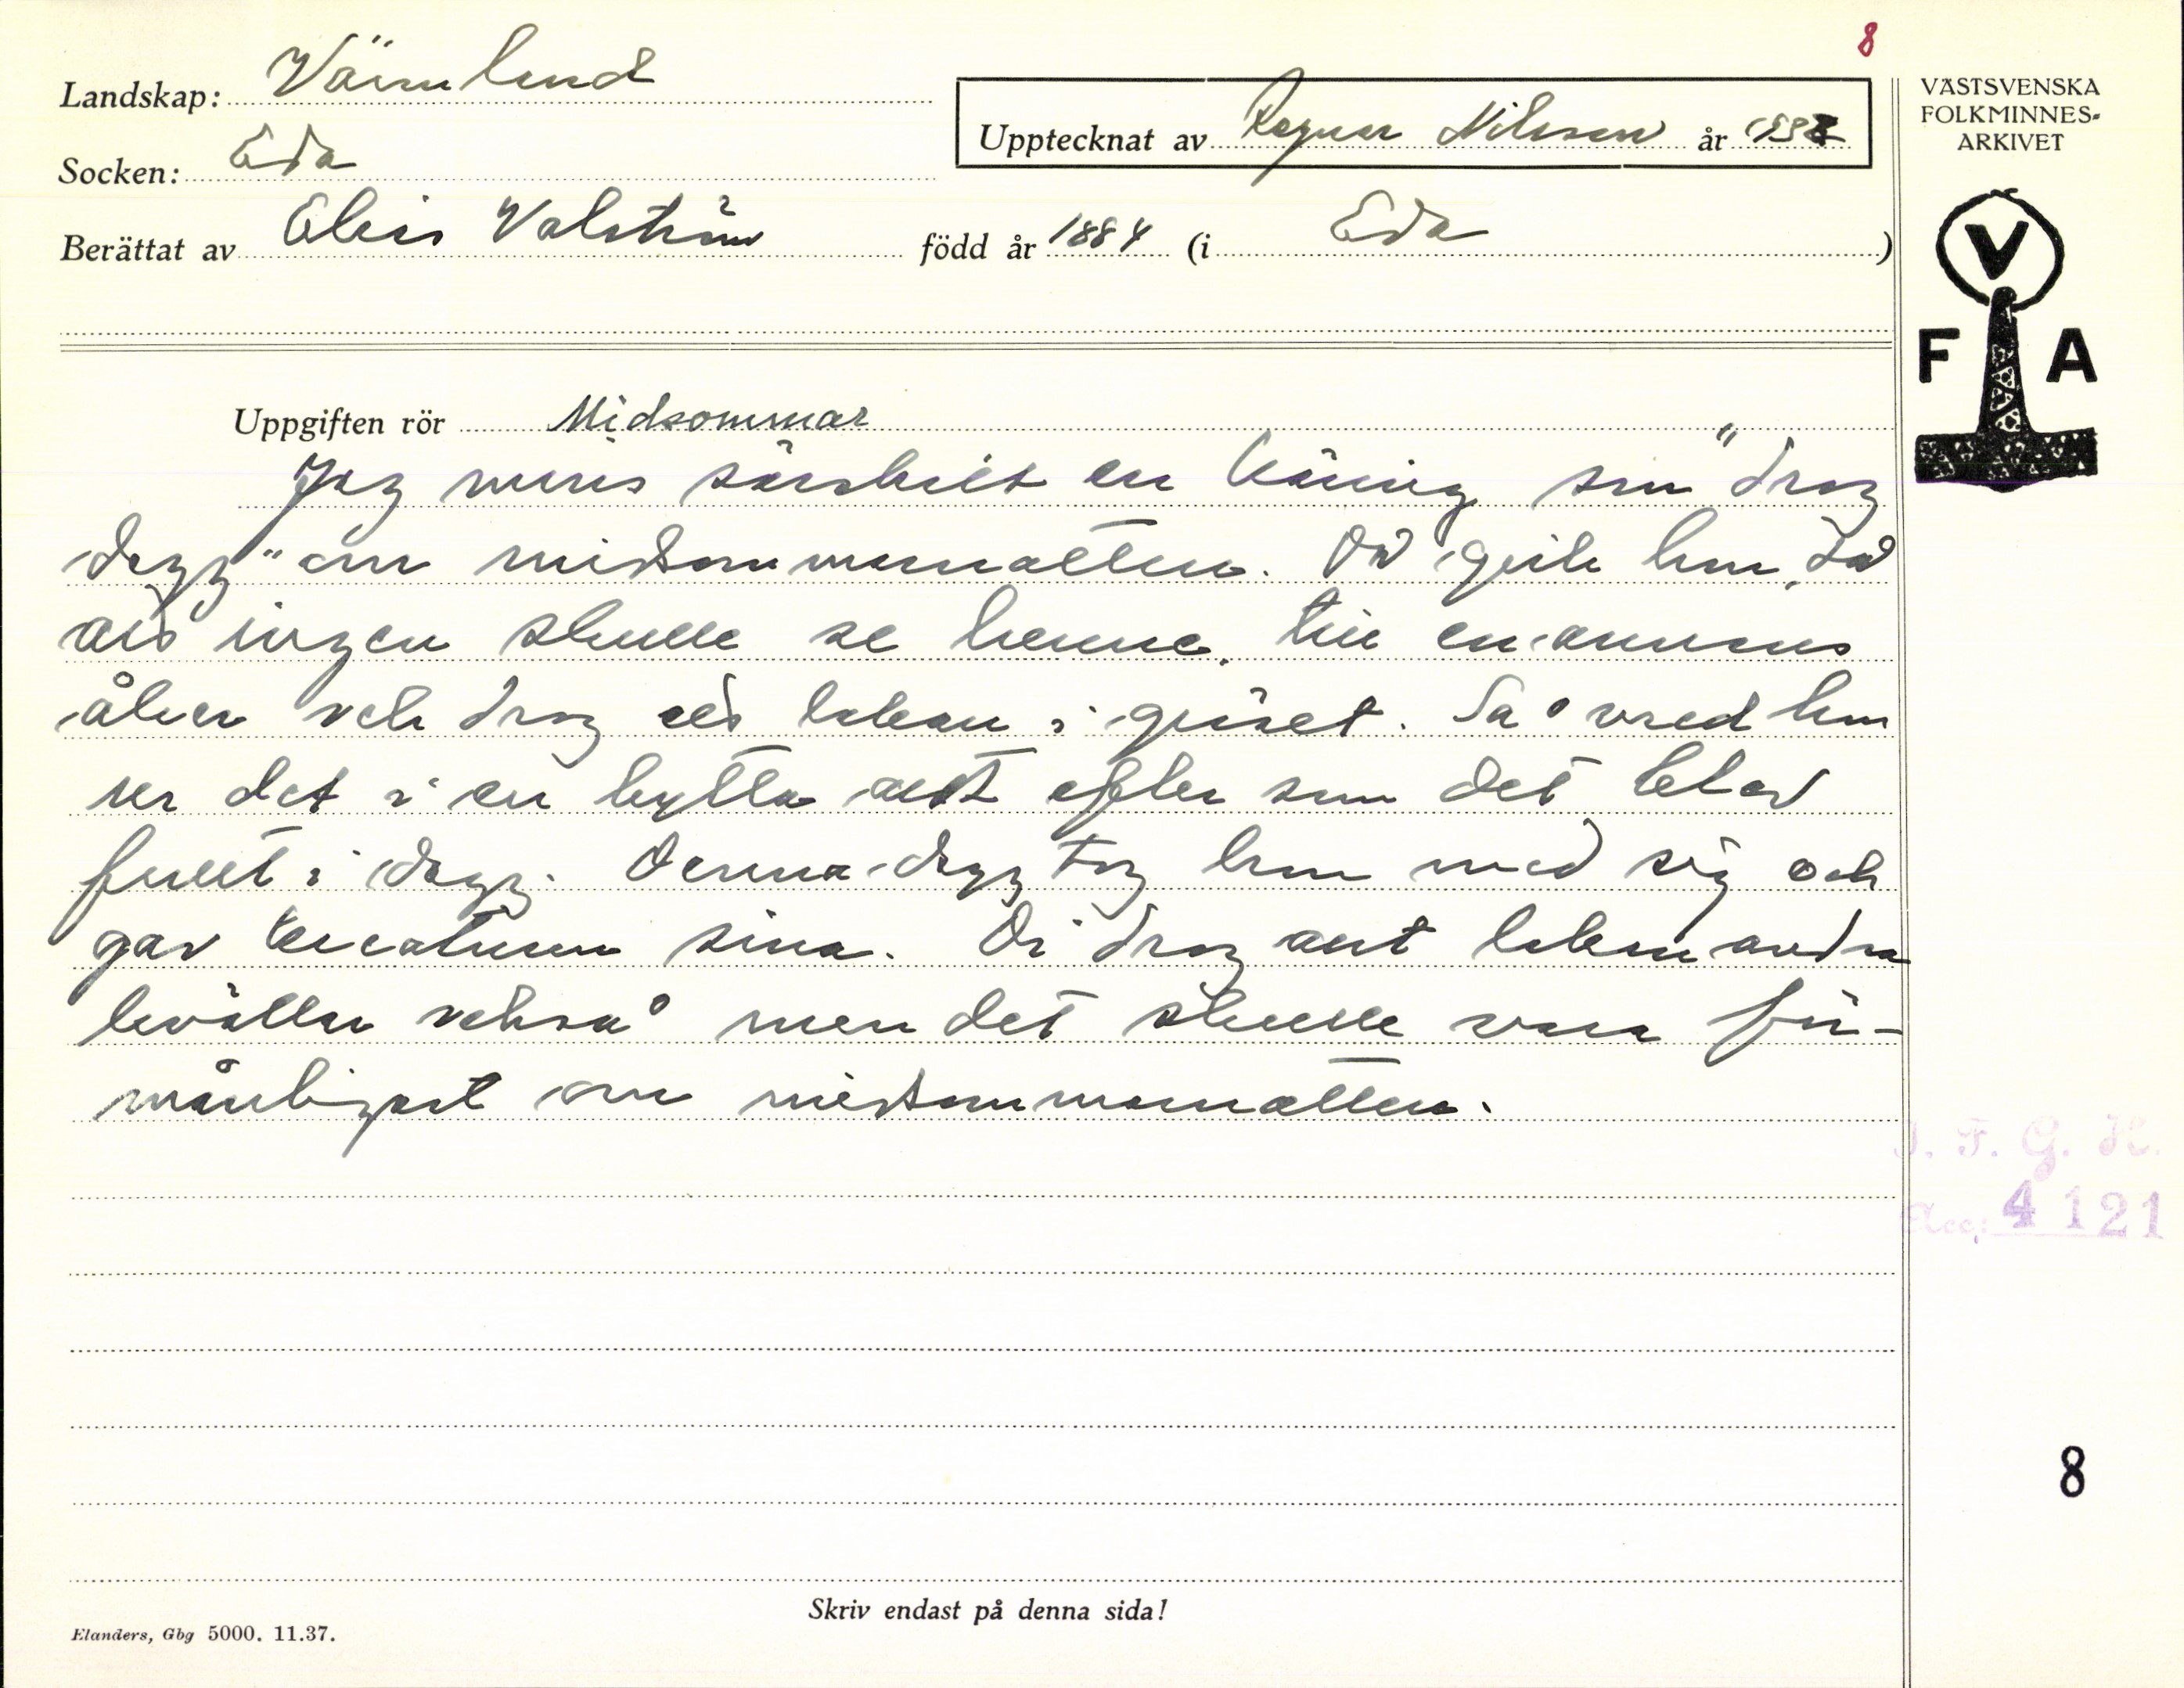 8
Landskap: Värmland
Socken: Eda
Upptecknat av Ragnar Nilsson år 1938
Berättat av Elis Valström född år 1884 (i Eda)
VÄSTSVENSKA
FOLKMINNES-
ARKIVET
V
F A
Uppgiften rör Midsommar
Jag minns särskilt en käring som "drog
dagg" om midsommarnatten. Då gick hon, då
att ingen skulle se henne, till en annans
åker och drog ett lakan i gräset. Så vred hon
ur det i en bytta allt efter som det blev
fullt i dagg. Denna dagg tog hon med sig och
gav kreaturen sina. Di drog ant lakan andra
kvällar också men det skulle vara för-
månligast om midsommarnatten.
I. F. G. H.
Acc: 4121
8
Skriv endast på denna sida!
Elanders, Gbg 5000. 11.37.